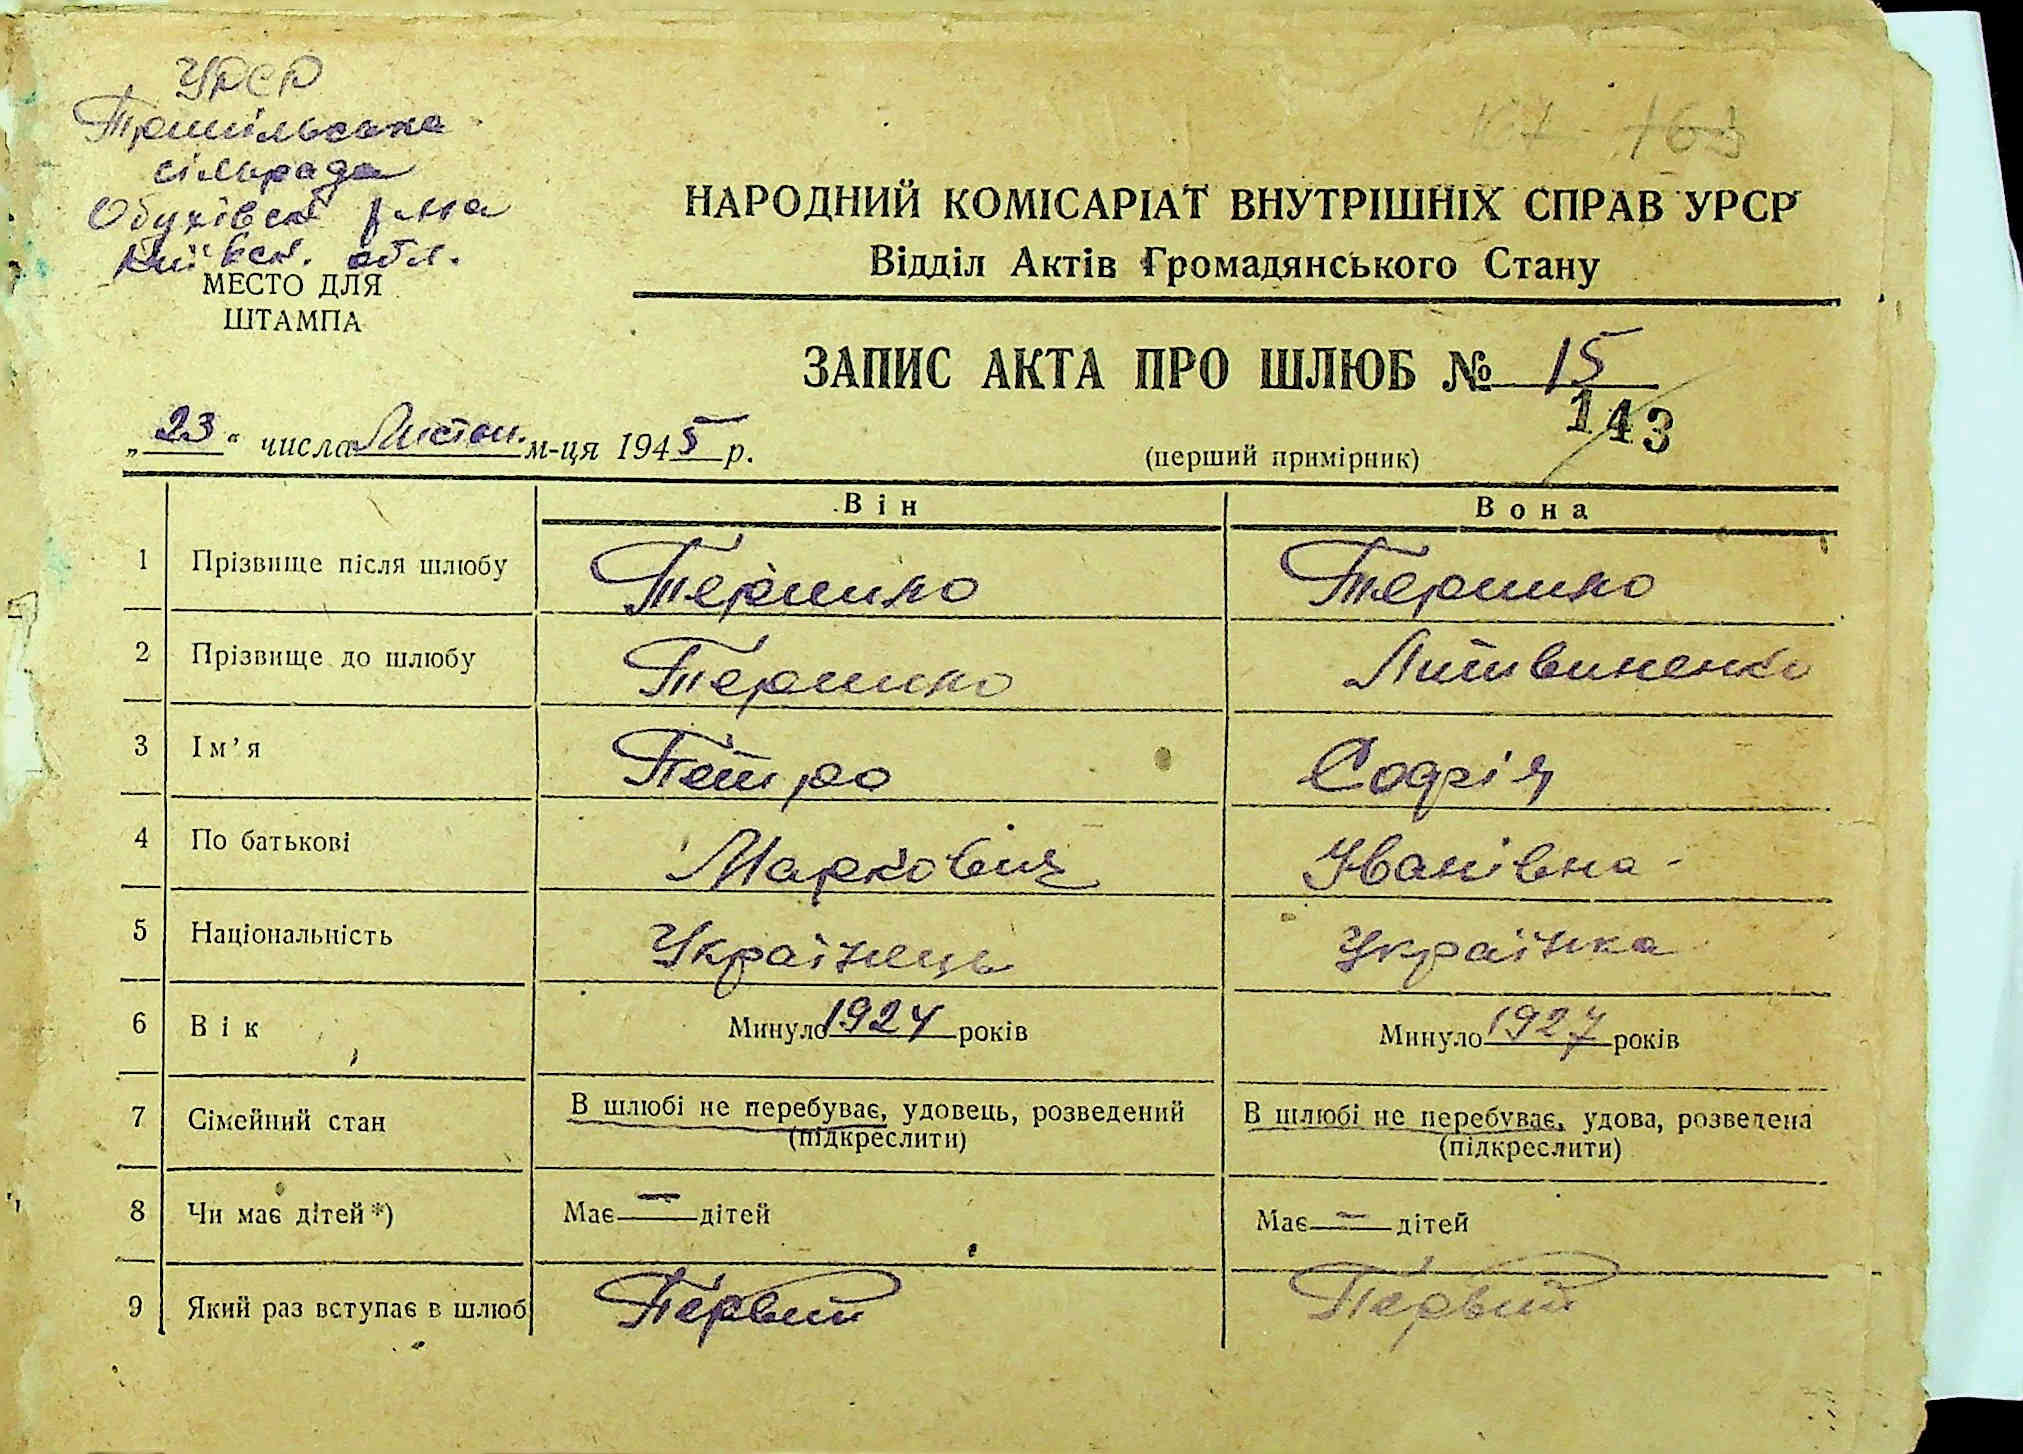 УРСР
Трипільська
сільрада
Обухівськ р-на
Київськ. обл.
МЕСТО ДЛЯ
ШТАМПА
167 163
НАРОДНИЙ КОМІСАРІАТ ВНУТРІШНІХ СПРАВ УРСР
Відділ Актів Громадянського Стану
ЗАПИС АКТА ПРО ШЛЮБ № 15
143
„23“ числа Листоп. м-ця 1945 р.
(перший примірник)
Він Вона
1 Прізвище після шлюбу
2 Прізвище до шлюбу Литвиненко
3 Ім’я Петро Софія
4 По батькові Маркович Іванівна
5 Національність Українець Українка
6 Вік Минуло 1924 років Минуло 1927 років
7 Сімейний стан В шлюбі не перебуває, удовець, розведений В шлюбі не перебуває, удова, розведена
(підкреслити) (підкреслити)
8 Чи має дітей*) Має — дітей Має — дітей
9 Який раз вступає в шлюб Первий Первий